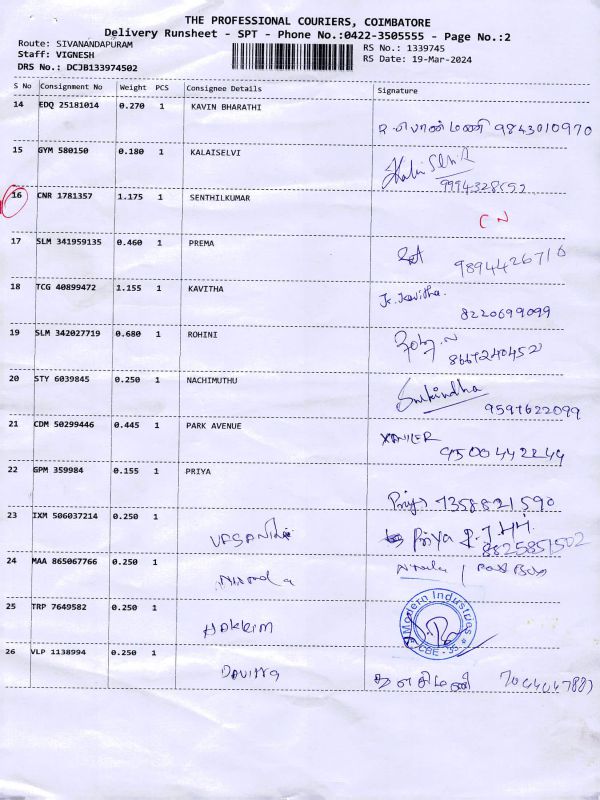 THE PROFESSIONAL COURIERS, COIMBATORE
Delivery Runsheet - SPT - Phone No.:0422-3505555 - Page No.:2
Route: SIVANANDAPURAM
Staff: VIGNESH
DRS No.: DCJB133974502
RS No.: 1339745
RS Date: 19-Mar-2024
S No Consignment No Weight PCS Consignee Details Signature
14 EDQ 25181014 0.270 1 KAVIN BHARATHI
9843010970
15 GYM 580150 0.180 1 KALAISELVI
16 CNR 1781357 1.175 1 SENTHILKUMAR
CN
17 SLM 341959135 0.460 1 PREMA
9894426716
18 TCG 40899472 1.155 1 KAVITHA
Kavitha.
8220699099
19 SLM 342027719 0.680 1 ROHINI
8667240452
20 STY 6039845 0.250 1 NACHIMUTHU
9597622099
21 CDM 50299446 0.445 1 PARK AVENUE
9500442244
22 GPM 359984 0.155 1 PRIYA
Priya 7358821590
23 IXM 506037214 0.250 1
Priya
8825851502
24 MAA 865067766 0.250 1
25 TRP 7649582 0.250 1
HAKKIM
Modern Industries
CBE - 35
26 VLP 1138994 0.250 1